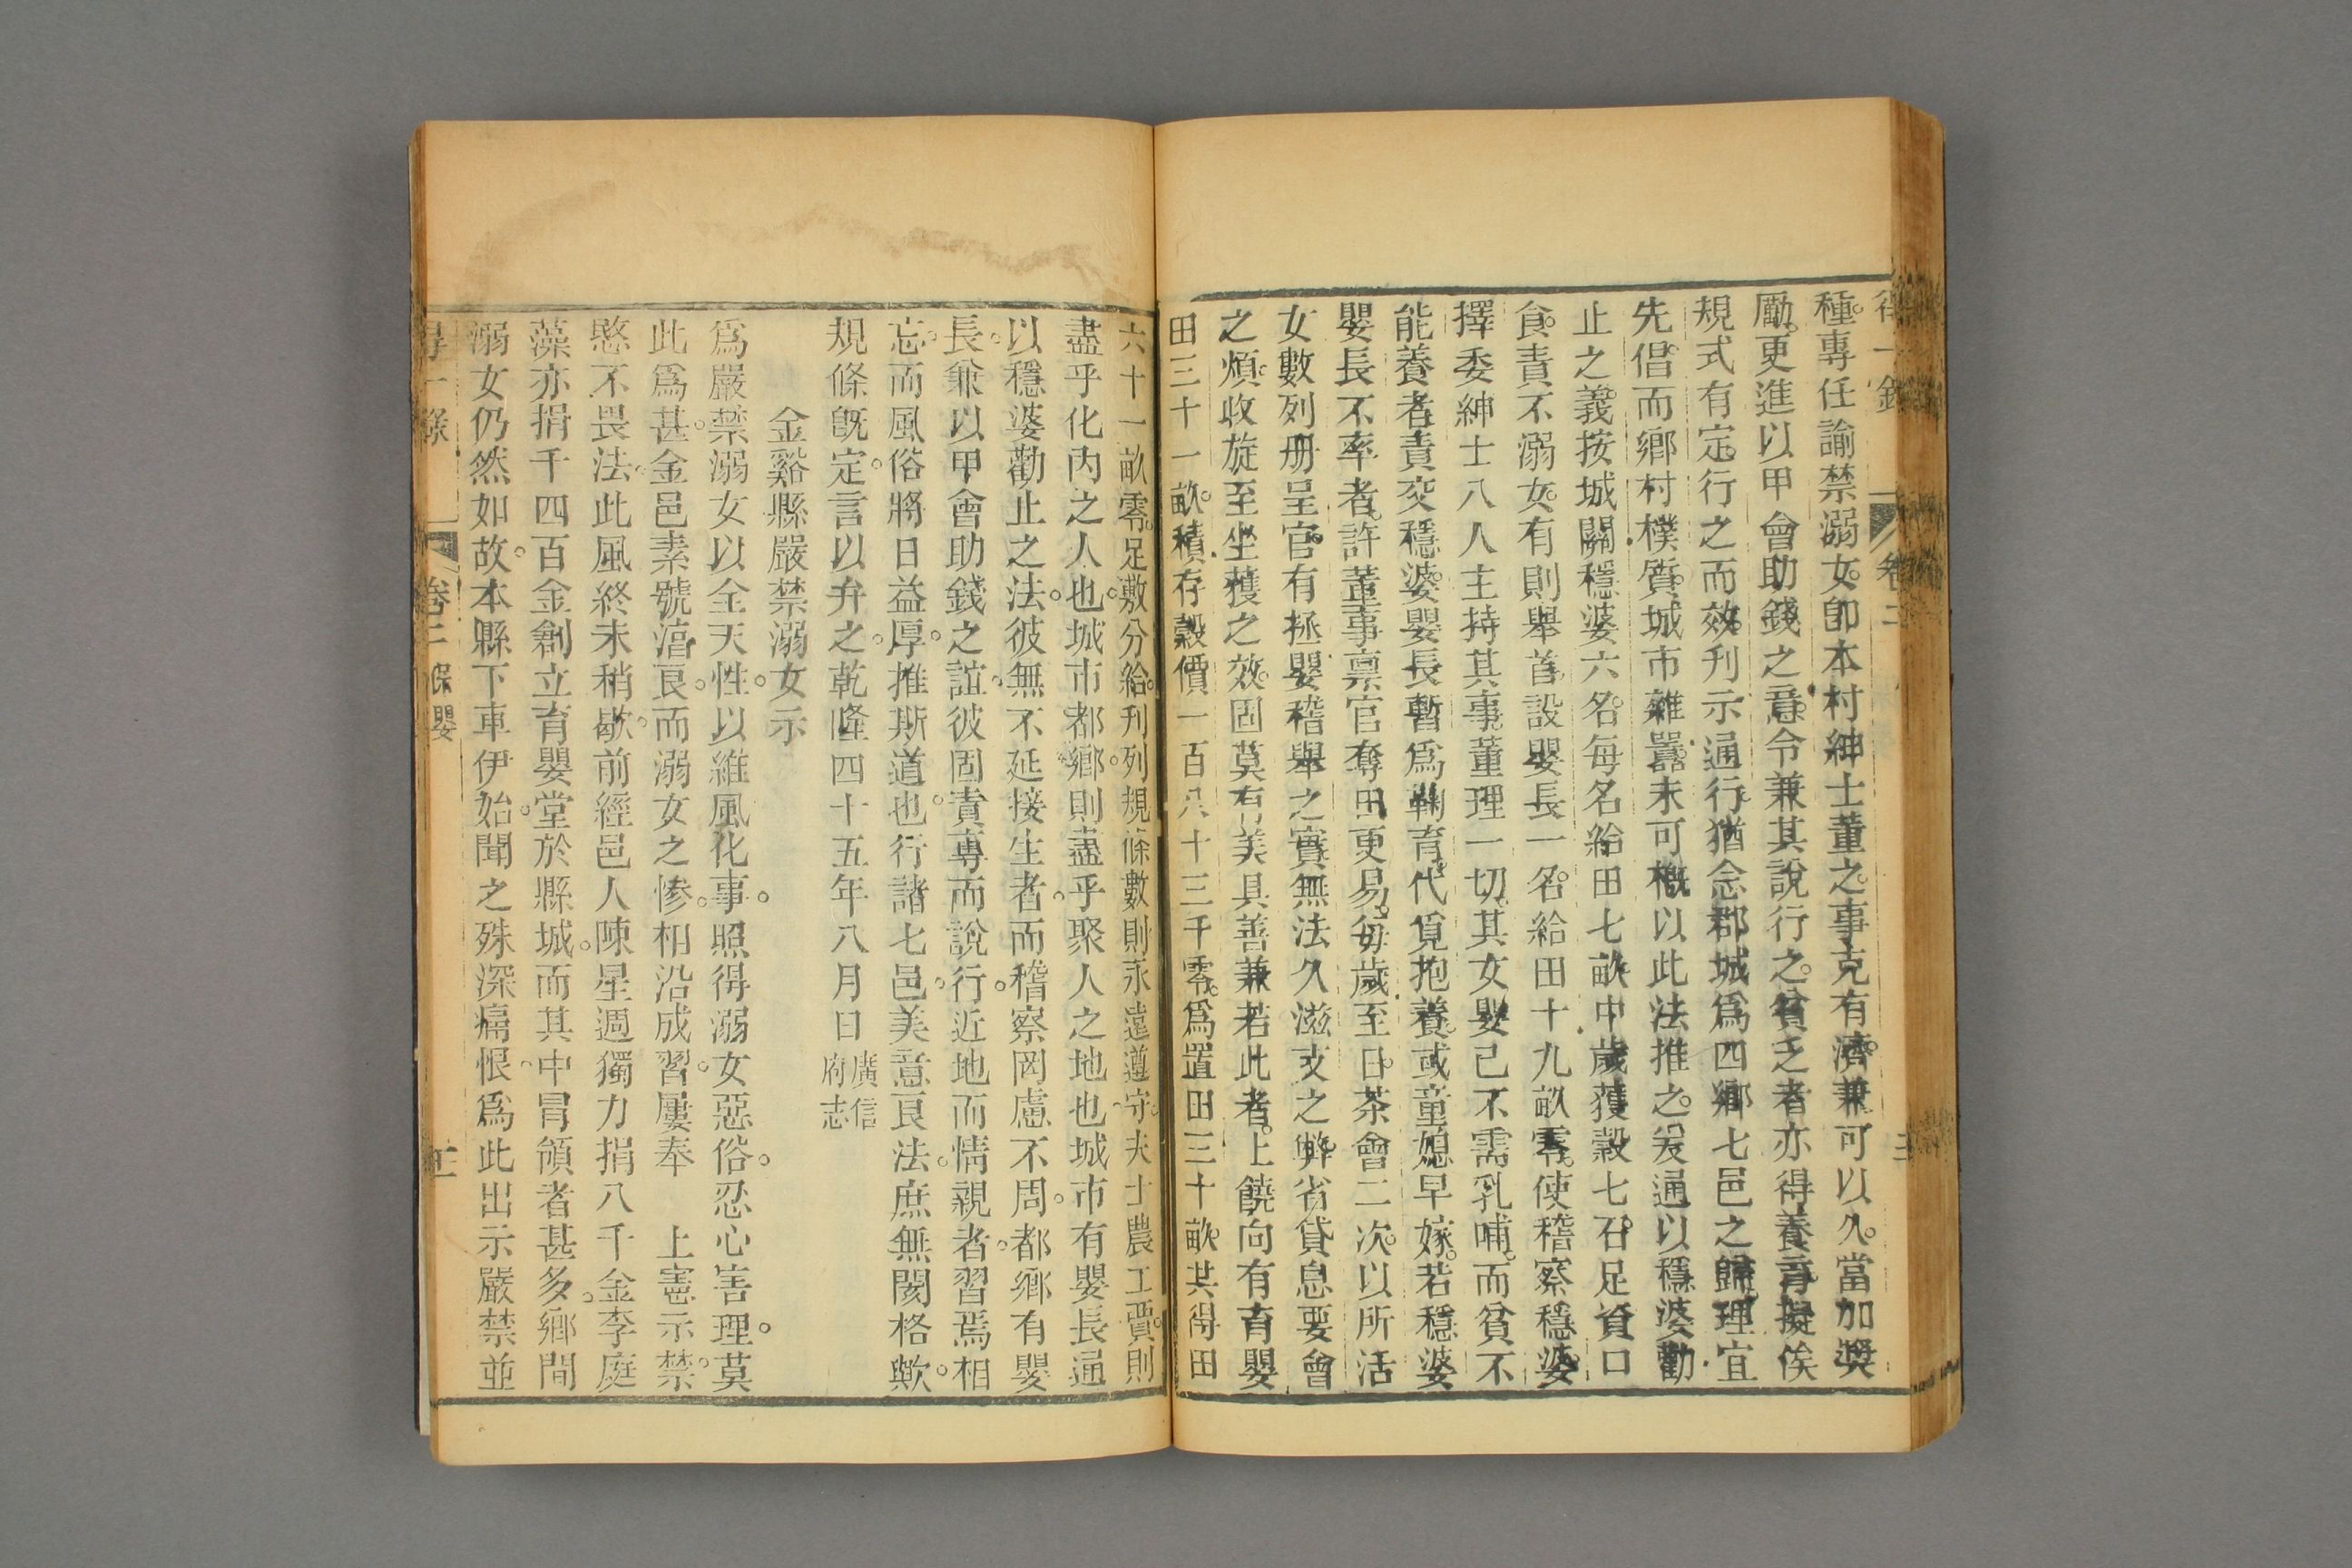 得一錄 卷二
種專任諭禁溺女卽本村紳士董之事克有濟兼可以久當加奬
勵更進以甲會助錢之意令兼其說行之貧乏者亦得養育擬俟
規式有定行之而效刋示通行猶念郡城爲四鄉七邑之歸理宜
先倡而鄉村樸質城市雜囂未可槪以此法推之爰通以穩婆勸
止之義按城關穩婆六名每名給田七畝中歲獲穀七石足資口
食責不溺女有則舉首設嬰長一名給田十九畝零使稽察穩婆
擇委紳士八人主持其事董理一切其女嬰已不需乳哺而貧不
能養者責交穩婆嬰長暫爲鞠育代覓抱養或童媳早嫁若穩婆
嬰長不率者許董事禀官奪田更易每歲至日茶會二次以所活
女數列册呈官有拯嬰稽舉之實無法久滋支之弊省貸息要會
之煩收旋至坐獲之效固莫有美具善兼若此者上饒向有育嬰
田三十一畝積存穀價一百八十三千零爲置田三十畝其得田
六十一畝零足敷分給刋列規條數則永遠遵守夫士農工賈則
盡乎化內之人也城市都鄉則盡乎聚人之地也城市有嬰長通
以穩婆勸止之法彼無不延接生者而稽察罔慮不周都鄉有嬰
長兼以甲會助錢之誼彼固責專而說行近地而情親者習焉相
忘而風俗將日益厚推斯道也行諸七邑美意良法庶無閡格歟
規條旣定言以弁之乾隆四十五年八月日 廣信府志
金谿縣嚴禁溺女示
爲嚴禁溺女以全天性以維風化事照得溺女惡俗忍心害理莫
此爲甚金邑素號湻良而溺女之慘相沿成習屢奉 上憲示禁
愍不畏法此風終未稍歇前經邑人陳星週獨力捐八千金李庭
藻亦捐千四百金創立育嬰堂於縣城而其中冒領者甚多鄉間
溺女仍然如故本縣下車伊始聞之殊深痛恨爲此出示嚴禁並
得一錄 卷二 保嬰